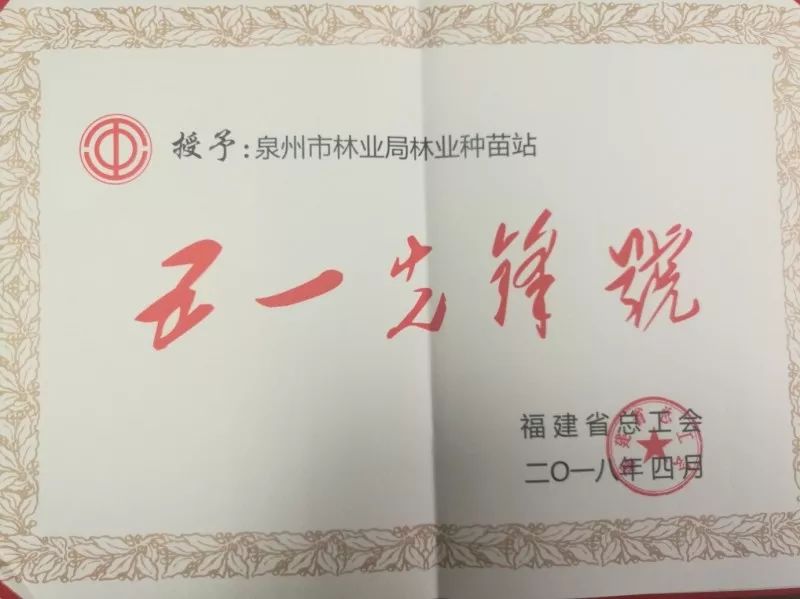 授予:泉州市林业局林业种苗站
五一先锋號
福建省总工会
二〇一八年四月
福建省总工会